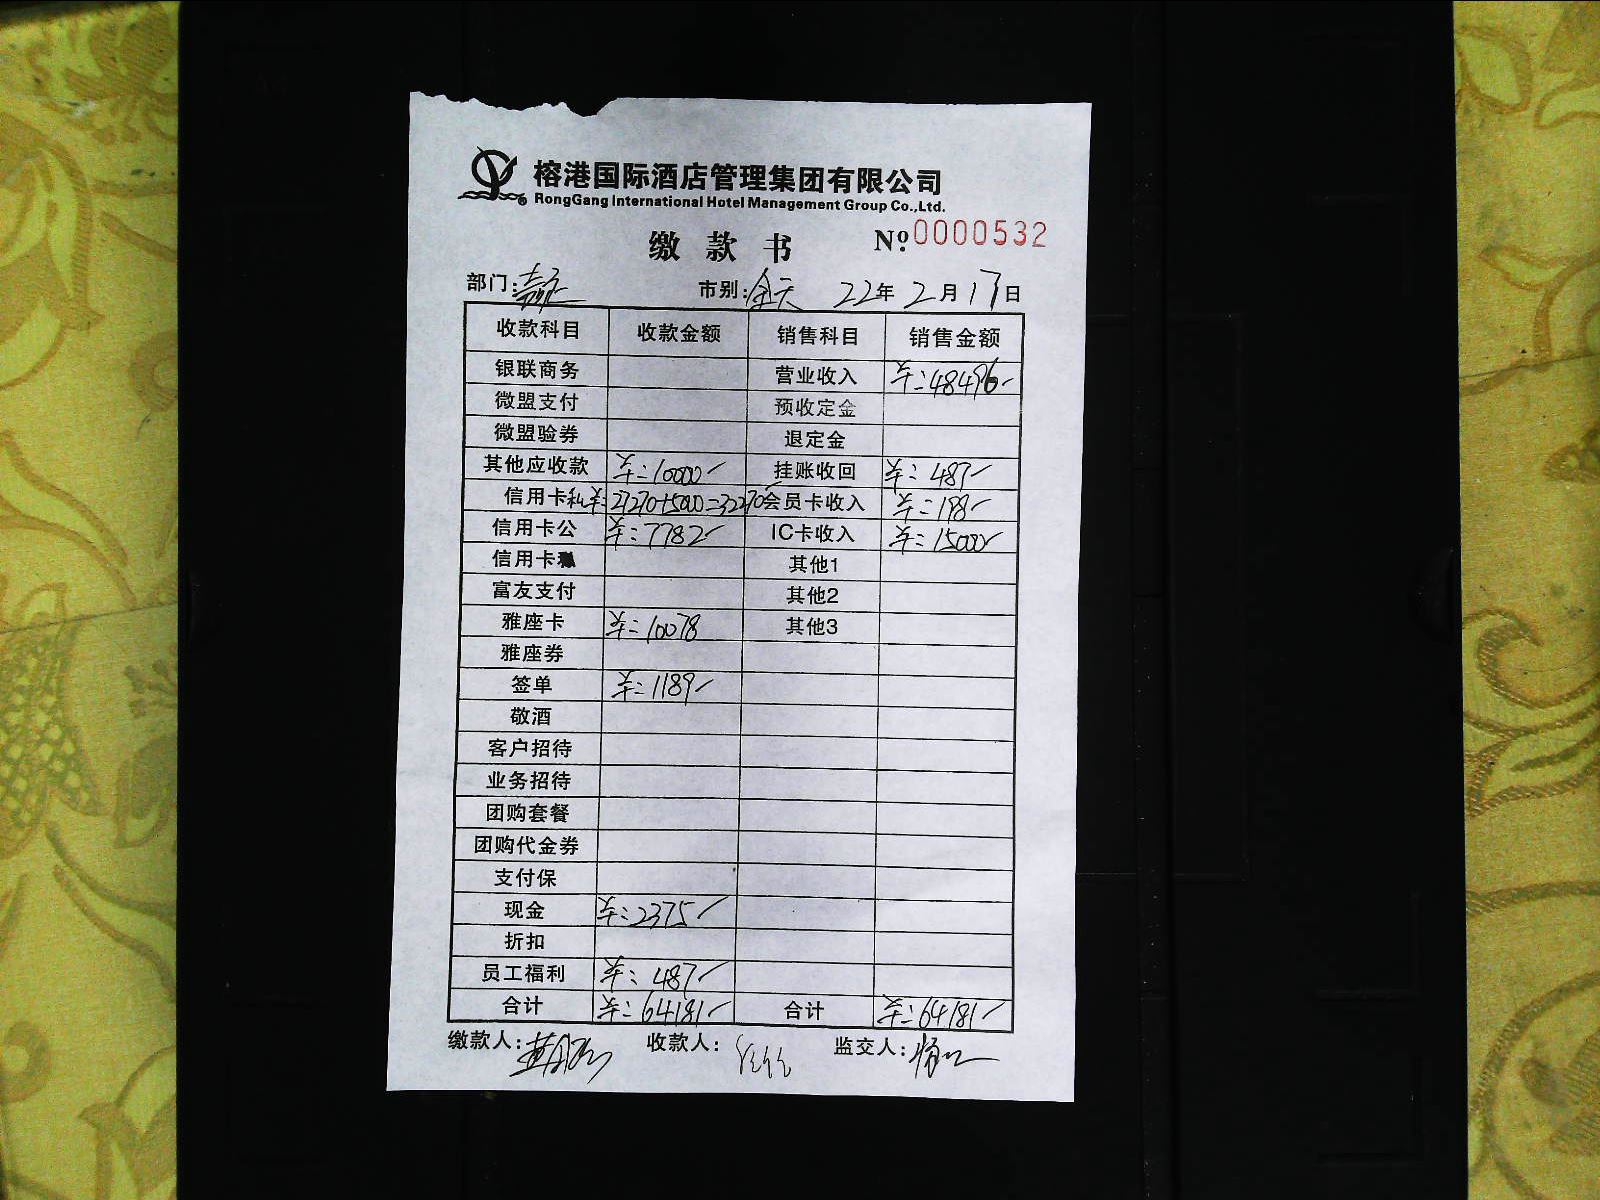 榕港国际酒店管理集团有限公司
RongGang International Hotel Management Group Co.,Ltd.
缴款书 Nº 0000532
部门: 市别:全天 22年2月17日
收款科目 收款金额 销售科目 销售金额
银联商务 营业收入 ¥:48496-
微盟支付 预收定金
微盟验券 退定金
其他应收款 ¥:10000- 挂账收回 ¥:487-
信用卡私 ¥:27270+5000=32270 会员卡收入 ¥:198-
信用卡公 ¥:7782- IC卡收入 ¥:15000-
信用卡 其他1
富友支付 其他2
雅座卡 ¥:10078 其他3
雅座券
签单 ¥:1189-
敬酒
客户招待
业务招待
团购套餐
团购代金券
支付保
现金 ¥:2375-
折扣
员工福利 ¥:487-
合计 ¥:64181- 合计 ¥:64181-
缴款人: 收款人: 监交人: